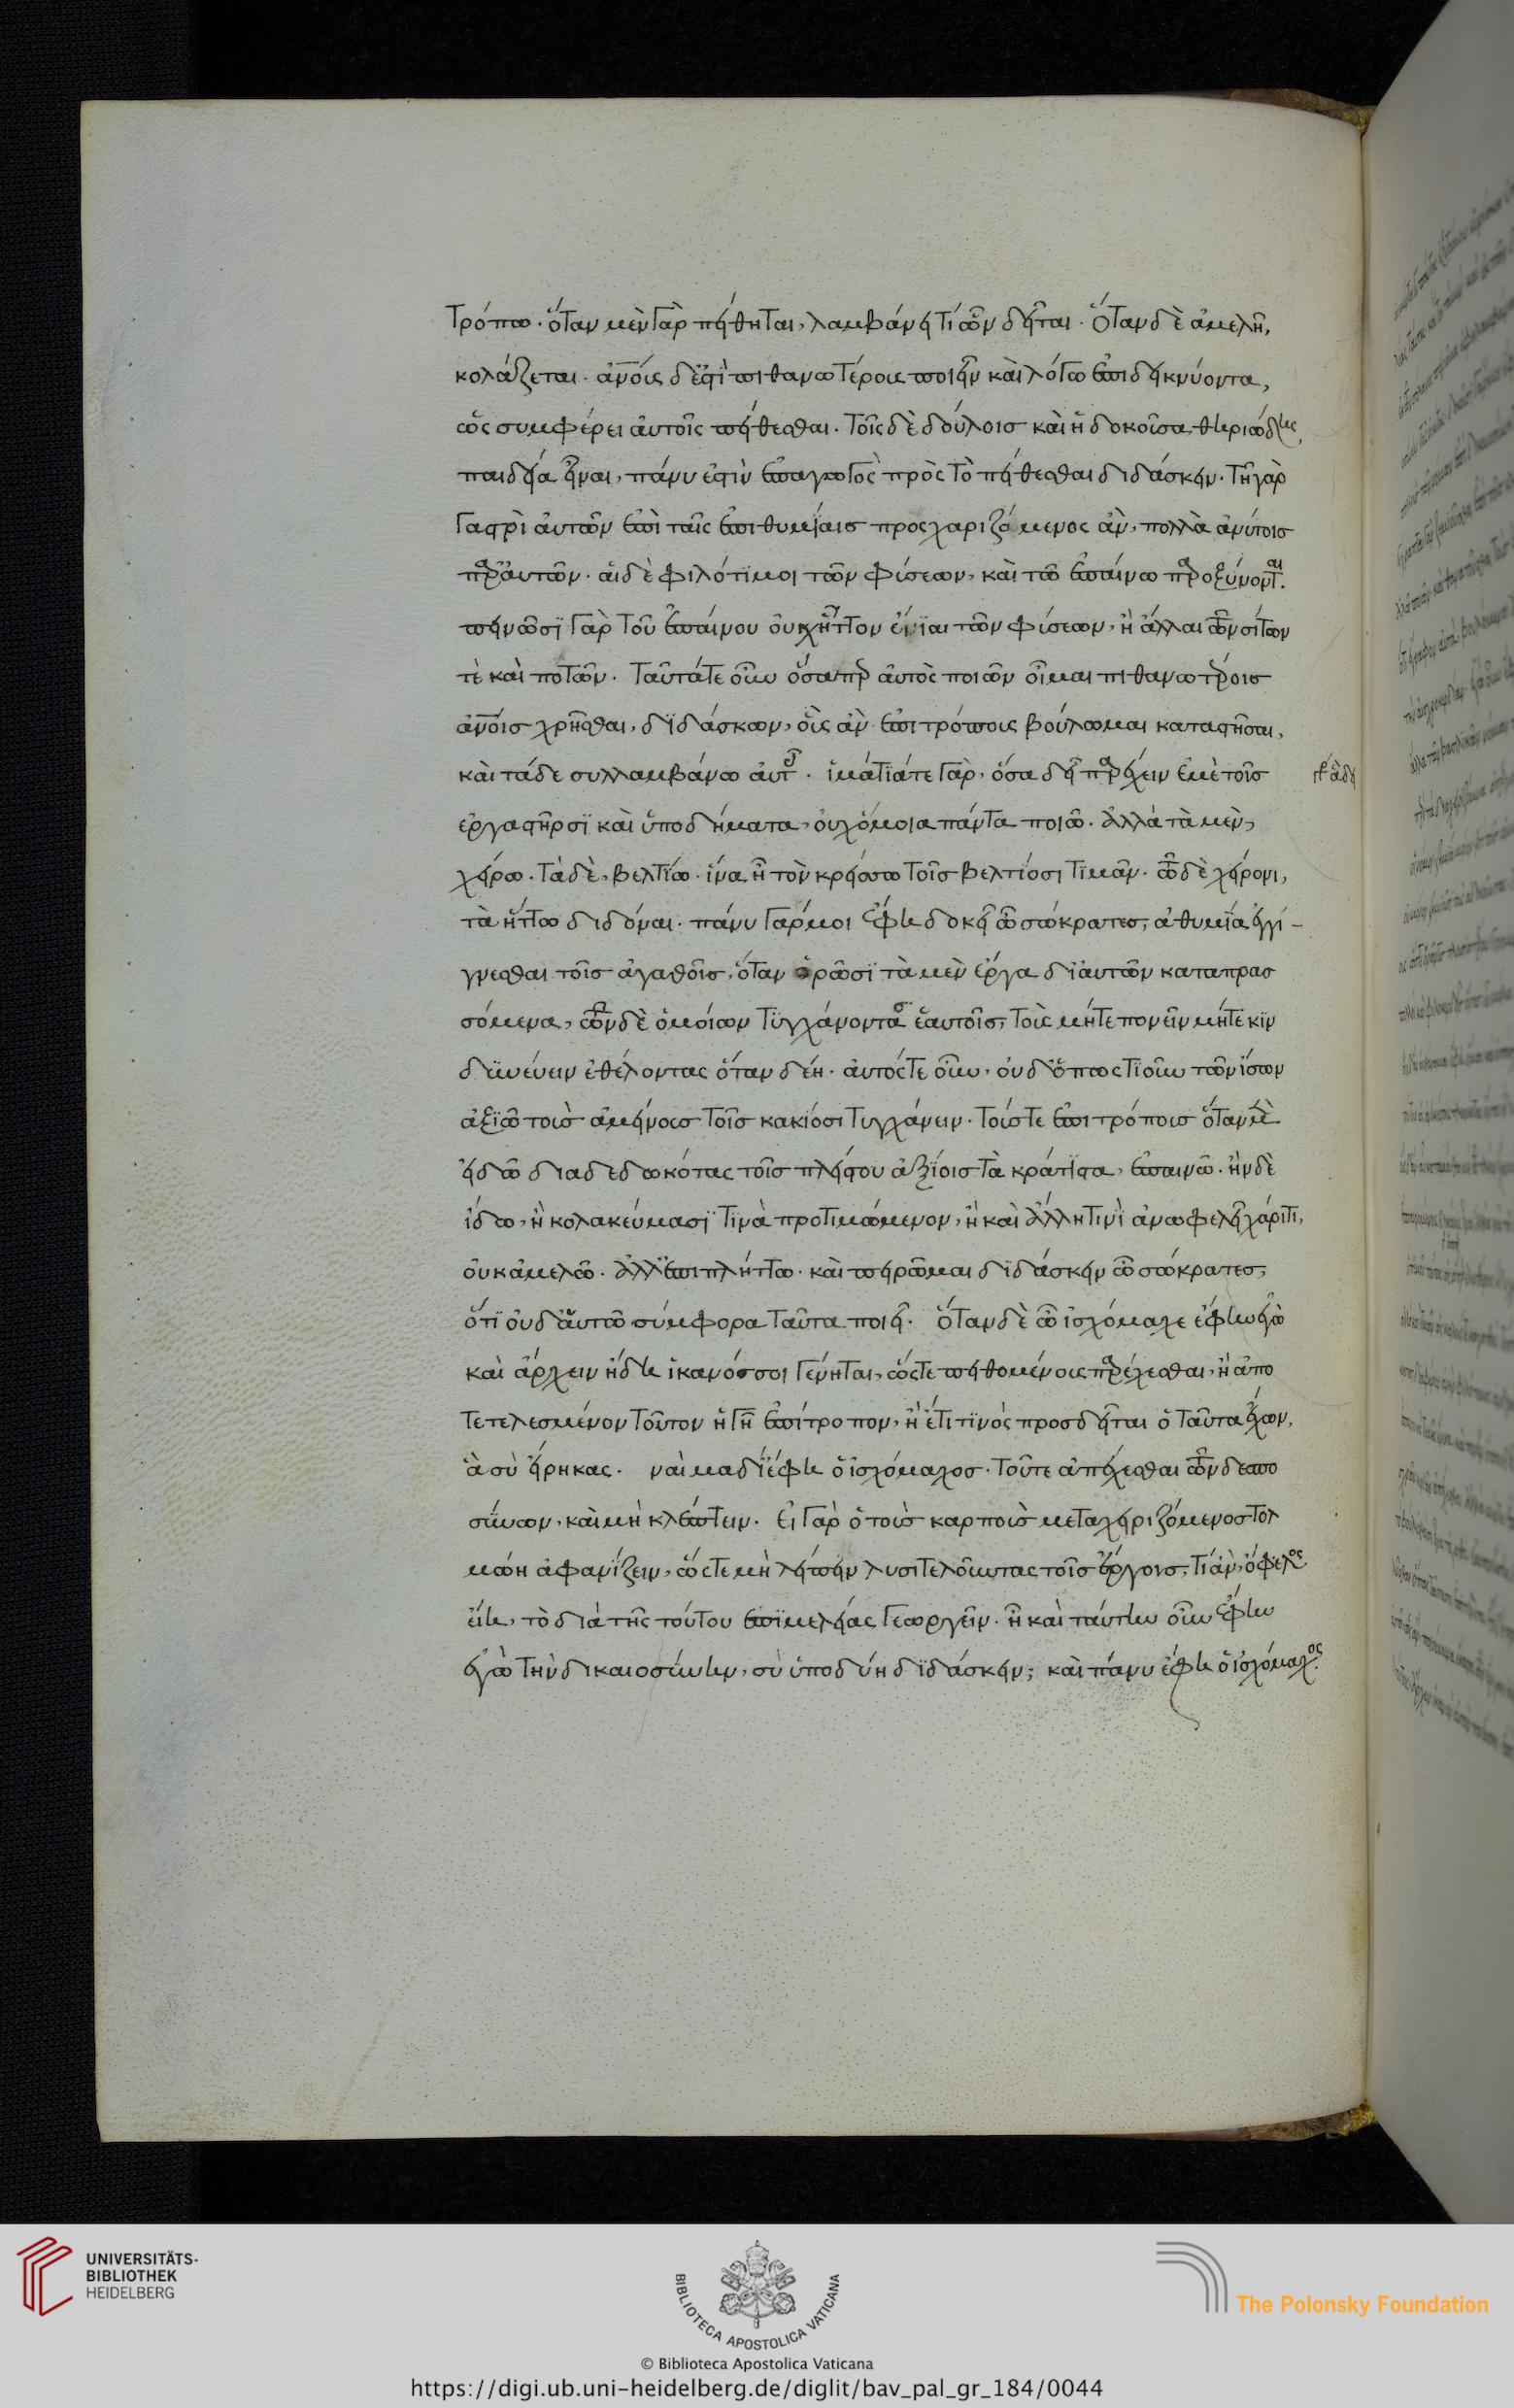 τρόπω· ὅταν μὲν γὰρ πείθηται, λαμβάνει τί ὧν δεῖται· ὅταν δὲ ἀμελῆ,
κολάζεται· ἀνοις δ' ἐστὶ πιθανωτέροις ποιεῖν καὶ λόγω ἐπιδεικνύοντα,
ὡς συμφέρει αὐτοῖς πείθεσθαι· τοῖς δὲ δούλοισ καὶ ἡ δοκοῖσα θηριώδης
παιδεία εἶναι, πάνυ ἐστὶν ἐπαγωγὸς πρὸς τὸ πείθεσθαι διδάσκειν· τῆ γὰρ
γαστρὶ αὐτῶν ἐπὶ ταῖς ἐπιθυμίαισ προσχαριζόμενος ἂν, πολλὰ ἀνύτοισ
παρ' αὐτῶν· αἱ δὲ φιλότιμοι τῶν φύσεων, καὶ τῶ ἐπαίνω παροξύνονται.
πεινῶσϊ γὰρ τοῦ ἐπαίνου οὐχ ἧττον ἔνϊαι τῶν φύσεων, ἢ ἄλλαι τῶν σίτων
τὲ καὶ ποτῶν· ταῦτά τε οὖν ὅσα περ αὐτὸς ποιῶν οἶμαι πιθανωτέροισ
ἀνοισ χρῆσθαι, διδάσκων, οἷς ἂν ἐπιτρόποις βούλωμαι καταστῆσαι,
καὶ τάδε συλλαμβάνω αὐτοῖς· ἱμάτιά τε γὰρ, ὅσα δεῖ παρέχειν ἐμὲ τοῖσ
ἐργαστῆρσϊ καὶ ὑποδήματα, οὐχ ὅμοια πάντα ποιῶ· ἀλλὰ τὰ μὲν,
χείρω· τὰ δὲ, βελτίω· ἵνα ἦ τὸν κρείσσω τοῖσ βελτίοσι τιμᾶν· τῶ δὲ χείρονι,
τὰ ἥττω διδόναι· πάνυ γάρ μοι ἔφη δοκεῖ ὦ σώκρατεσ, ἀθυμία ἐγγί-
γνεσθαι τοῖσ ἀγαθοῖσ, ὅταν ὁρῶσϊ τὰ μὲν ἔργα δι' αὐτῶν καταπρασ
σόμενα, τῶν δὲ ὁμοίων τϋγχάνοντασ ἑαυτοῖσ, τοὺς μήτε πονεῖν μήτε κϊν
δϋνεύειν ἐθέλοντας ὅταν δέη· αὐτός τε οὖν, οὐδ' ὅπως τϊοῦν τῶν ἴσων
ἀξϊῶ τοὺσ ἀμείνουσ τοῖσ κακίοσι τυγχάνειν· τούς τε ἐπιτρόπουσ ὅταν μὲν
εἰδῶ διαδεδωκότας τοῖσ πλείστου ἀξίοισ τὰ κράτιστα, ἐπαινῶ· ἢν δὲ
ἴδω, ἢ κολακεύμασϊ τϊνὰ προτιμώμενον, ἢ καὶ ἄλλη τινὶ ἀνωφελεῖ χάριτι,
οὐκ ἀμελῶ· ἀλλ' ἐπιπλήττω· καὶ πειρῶμαι διδάσκειν ὦ σώκρατεσ,
ὅτϊ οὐδ' ἁυτῶ σύμφορα ταῦτα ποιεῖ· ὅταν δὲ ὦ ἰσχόμαχε ἔφην ἐγὼ
καὶ ἄρχειν ἤδη ἱκανόσ σοι γένηται, ὥστε πειθομένους παρέχεσθαι, ἢ ἀπο
τετελεσμένον τοῦτον ἡγῆ ἐπίτροπον, ἢ ἔτι τϊνὸς προσδεῖται ὁ ταῦτα ἔχων,
ἃ σὺ εἴρηκας· ναὶ μὰ δί' ἔφη ὁ ἰσχόμαχοσ· τοῦ τε ἀπέχεσθαι τῶν δεσπο
σύνων, καὶ μὴ κλέπτειν· εἰ γὰρ ὁ τοὺσ καρποὺσ μεταχειριζόμενοσ τολ
μώη ἀφανίζειν, ὥστε μὴ λείπειν λυσιτελοῦντας τοῖσ ἔργοισ, τί ἂν ὄφελος
εἴη, τὸ διὰ τῆς τούτου ἐπϊμελείας γεωργεῖν· ἦ καὶ ταύτην οὖν ἔφην
ἐγὼ τὴν δικαιοσύνην, σὺ ὑποδύη διδάσκειν; καὶ πάνυ ἔφη ὁ ἰσχόμαχος.
UNIVERSITÄTS-
BIBLIOTHEK
HEIDELBERG
BIBLIOTECA APOSTOLICA VATICANA
The Polonsky Foundation
© Biblioteca Apostolica Vaticana
https://digi.ub.uni-heidelberg.de/diglit/bav_pal_gr_184/0044